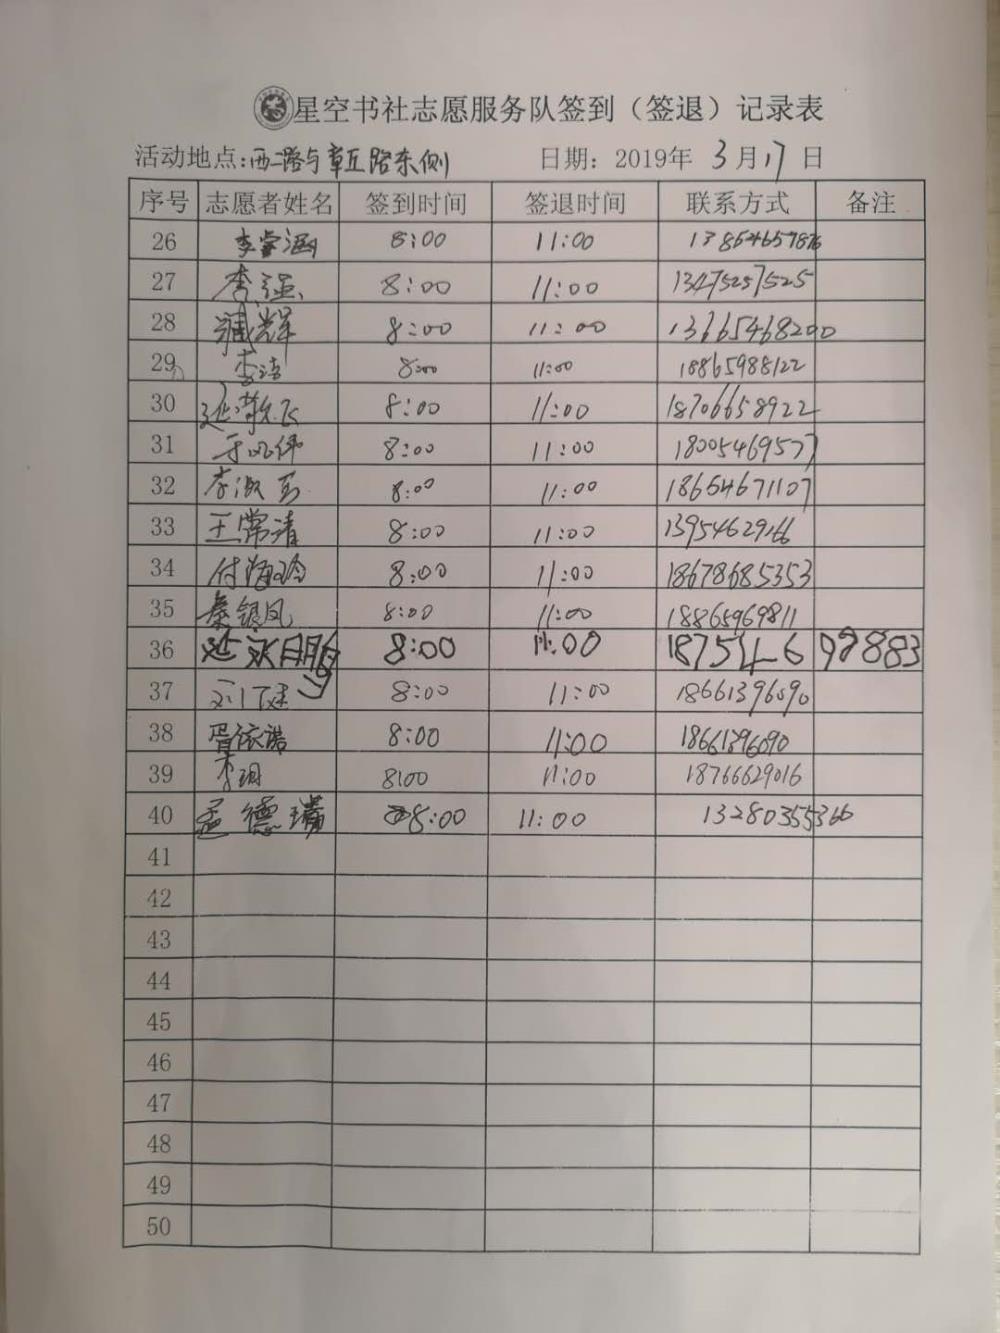 星空书社志愿服务队签到（签退）记录表
活动地点：西二路与章丘路东侧 日期：2019年 3月17日
序号 志愿者姓名 签到时间 签退时间 联系方式 备注
26 李睿涵 8:00 11:00 13864657876
27 李强 8:00 11:00 13475257525
28 臧辉 8:00 11:00 13665468200
29 李洁 8:00 11:00 18865988122
30 8:00 11:00 18706658922
31 于风伟 8:00 11:00 18005469577
32 李淑 8:00 11:00 18654671107
33 王常清 8:00 11:00 13954629166
34 付海玲 8:00 11:00 18678685353
35 秦银凤 8:00 11:00 18865969811
36 8:00 11:00 18754698883
37 8:00 11:00 18661396090
38 胥依诺 8:00 11:00 18661396090
39 李玥 8:00 11:00 18766629016
40 孟德瑞 8:00 11:00 13280355366
41
42
43
44
45
46
47
48
49
50